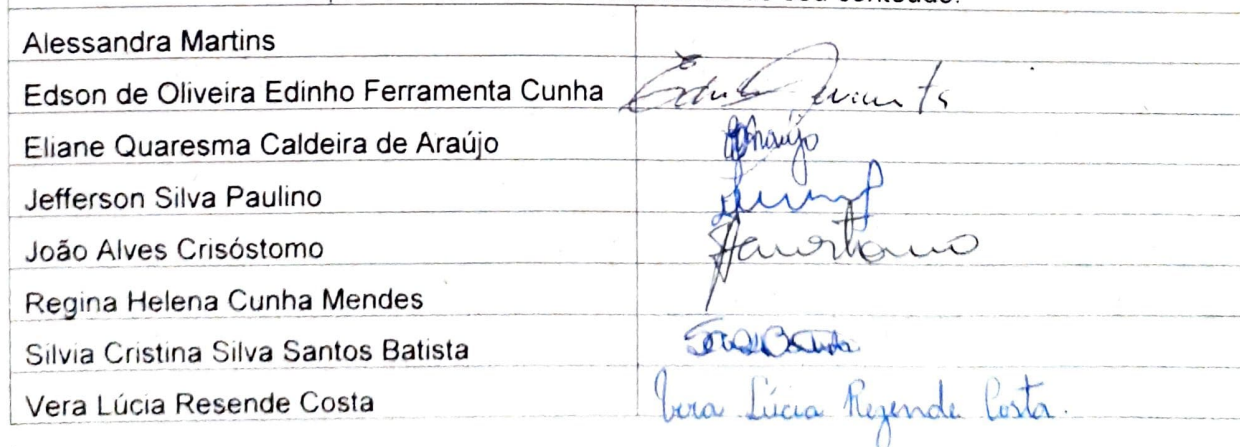 seu conteúdo.
Alessandra Martins
Edson de Oliveira Edinho Ferramenta Cunha
Eliane Quaresma Caldeira de Araújo Araújo
Jefferson Silva Paulino
João Alves Crisóstomo
Regina Helena Cunha Mendes
Silvia Cristina Silva Santos Batista
Vera Lúcia Resende Costa Vera Lúcia Rezende Costa.